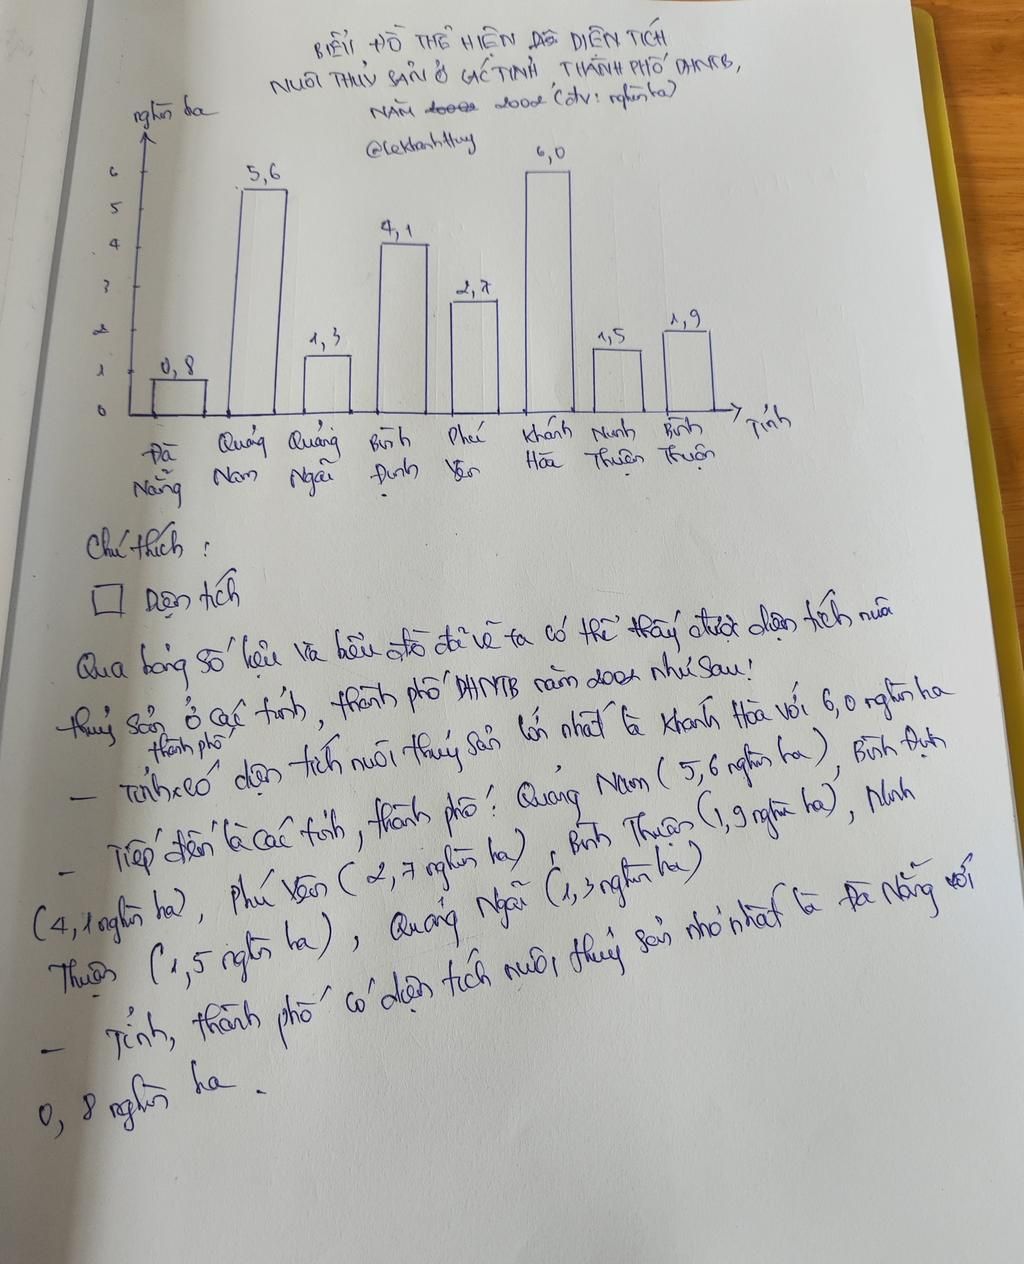 BIỂU ĐỒ THỂ HIỆN DIỆN TÍCH
NUÔI THỦY SẢN Ở CÁC TỈNH, THÀNH PHỐ DHNTB,
NĂM 2002 (đv: nghìn ha)
@LeKhanhHuy
nghìn ha
6
5
4
3
2
1
0
0,8
5,6
1,3
4,1
2,7
6,0
1,5
1,9
Tỉnh
Đà Nẵng
Quảng Nam
Quảng Ngãi
Bình Định
Phú Yên
Khánh Hòa
Ninh Thuận
Bình Thuận
Chú thích :
Diện tích
Qua bảng số liệu và biểu đồ đã vẽ ta có thể thấy được diện tích nuôi
thuỷ sản ở các tỉnh, thành phố DHNTB năm 2002 như sau:
thành phố
- Tỉnh có diện tích nuôi thuỷ sản lớn nhất là Khánh Hòa với 6,0 nghìn ha
- Tiếp đến là các tỉnh, thành phố: Quảng Nam (5,6 nghìn ha), Bình Định
(4,1 nghìn ha), Phú Yên (2,7 nghìn ha), Bình Thuận (1,9 nghìn ha), Ninh
Thuận (1,5 nghìn ha), Quảng Ngãi (1,3 nghìn ha)
- Tỉnh, thành phố có diện tích nuôi thuỷ sản nhỏ nhất là Đà Nẵng với
0,8 nghìn ha.